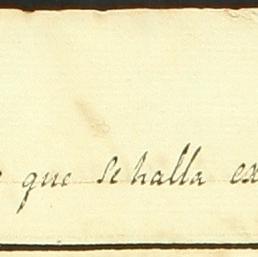 que se halla